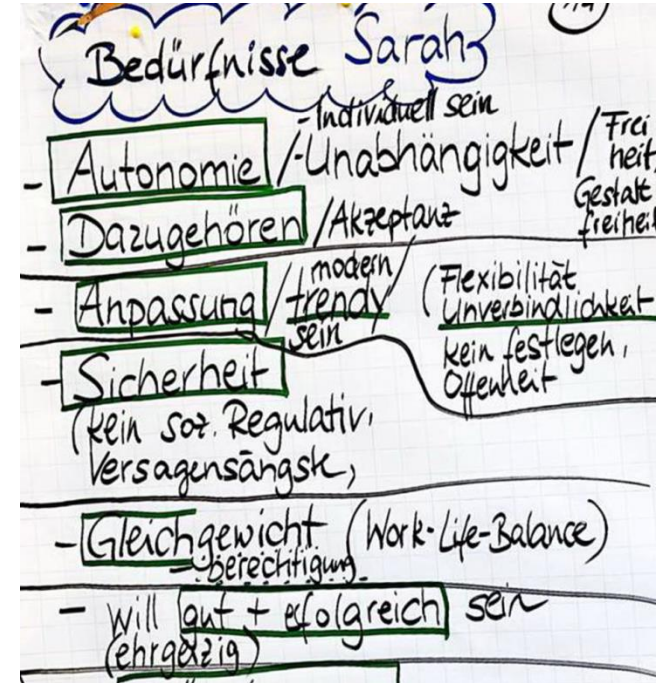 Bedürfnisse Sarah
- Individuell sein
- Autonomie / - Unabhängigkeit / Freiheit,
Gestaltfreiheit
- Dazugehören / Akzeptanz
- Anpassung / modern / trendy sein
(Flexibilität
Unverbindlichkeit
kein festlegen,
Offenheit
- Sicherheit
(kein soz. Regulativ,
Versagensängste,
- Gleichgewicht (Work-Life-Balance)
- berechtigung
- will gut + erfolgreich sein
(ehrgeizig)